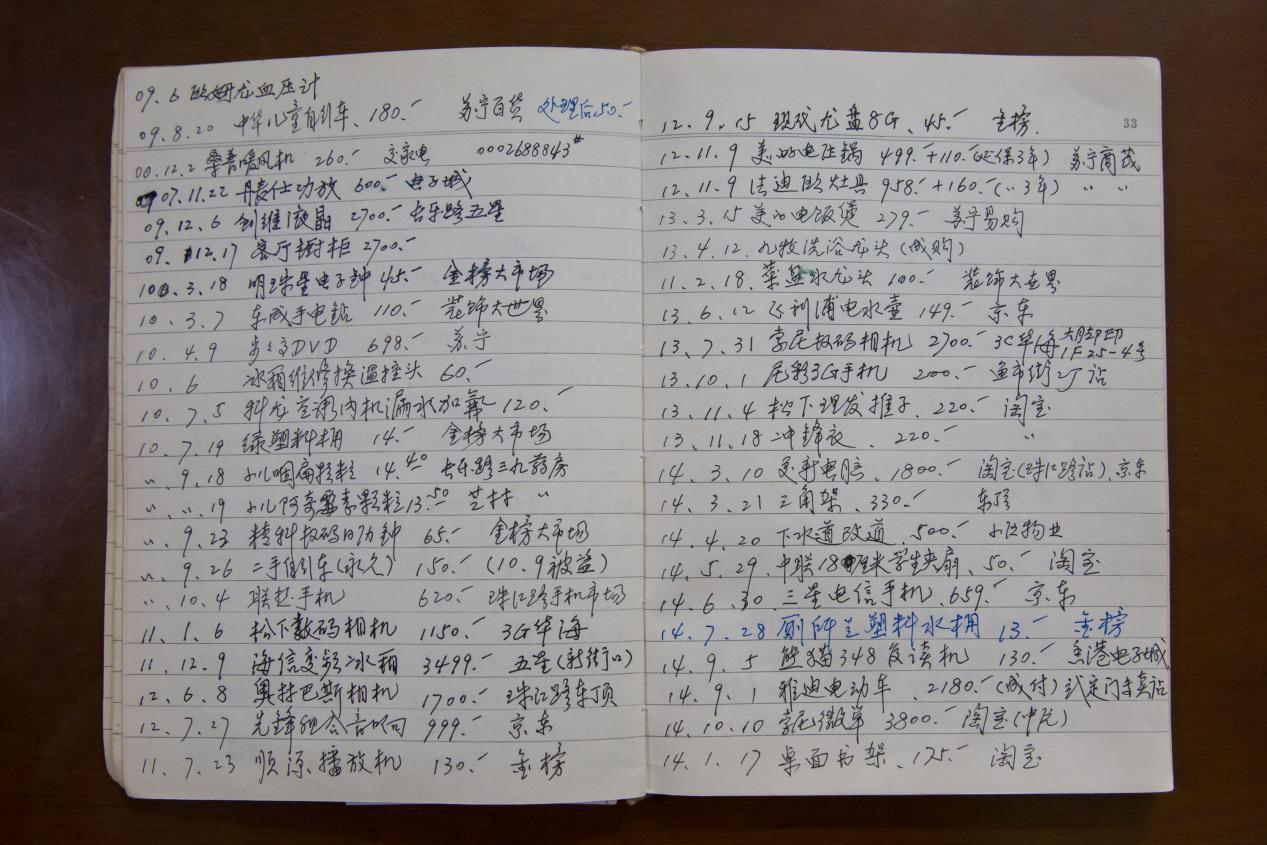 09.6 欧姆龙血压计
09.8.20 中华儿童自行车、180.- 苏宁百货 处理后50.-
00.12.2 桑普暖风机 260.- 交家电 0002688843#
07.11.22 功放 600.- 电子城
09.12.6 创维液晶 2700.- 长乐路五星
09.12.17 客厅橱柜 2700.-
10.3.18 明珠星电子钟 45.- 金榜大市场
10.3.7 东成手电钻 110.- 装饰大世界
10.4.9 步步高DVD 698.- 苏宁
10.6 冰箱维修换温控头 60.-
10.7.5 科龙空调内机漏水加氟 120.-
10.7.19 绿塑料桶 14.- 金榜大市场
〃.9.18 小儿咽扁颗粒 14.40 长乐路三九药房
〃.〃.19 小儿阿奇霉素颗粒 13.50 芝林 〃
〃.9.23 精科数码日历钟 65.- 金榜大市场
〃.9.26 二手自行车(永久) 150.- (10.9被盗)
〃.10.4 联想手机 620.- 珠江路手机市场
11.1.6 松下数码相机 1150.- 3G华海
11.12.9 海信变频冰箱 3499.- 五星(新街口)
12.6.8 奥林巴斯相机 1700.- 珠江路东顶
12.7.27 先锋组合音响 999.- 京东
11.7.23 顺源播放机 130.- 金榜
33
12.9.15 现代优盘8G、45.- 金榜.
12.11.9 美的电压锅 499.-+110.-(延保3年) 苏宁商茂
12.11.9 法迪欧灶具 958.-+160.-(〃3年) 〃 〃
13.3.15 美的电饭煲 279.- 苏宁易购
13.4.12. 九牧洗浴龙头 (成购)
11.2.18. 菜盆水龙头 100.- 装饰大世界
13.6.12 飞利浦电水壶 149.- 京东
13.7.31 索尼数码相机 2700.- 3C华海 1F25-4号
13.10.1 尼彩3G手机 200.- 鱼市街 店
13.11.4 松下理发推子、220.- 淘宝
13.11.18 冲锋衣、220.- 〃
14.3.10 更新电脑、1800.- 淘宝(珠江路店).京东
14.3.21 三角架、330.- 东顶
14.4.20 下水道改道、500.- 物业
14.5.29.中联18厘米学生夹扇、50.- 淘宝
14.6.30 三星电信手机、659.- 京东
14.7.28 厕所兰塑料水桶 13.- 金榜
14.9.5 熊猫348复读机 130.- 香港电子城
14.9.1 雅迪电动车、2180.-(成付) 武定门专卖店
14.10.10 索尼微单 3800.- 淘宝
14.1.17 桌面书架、175.- 淘宝